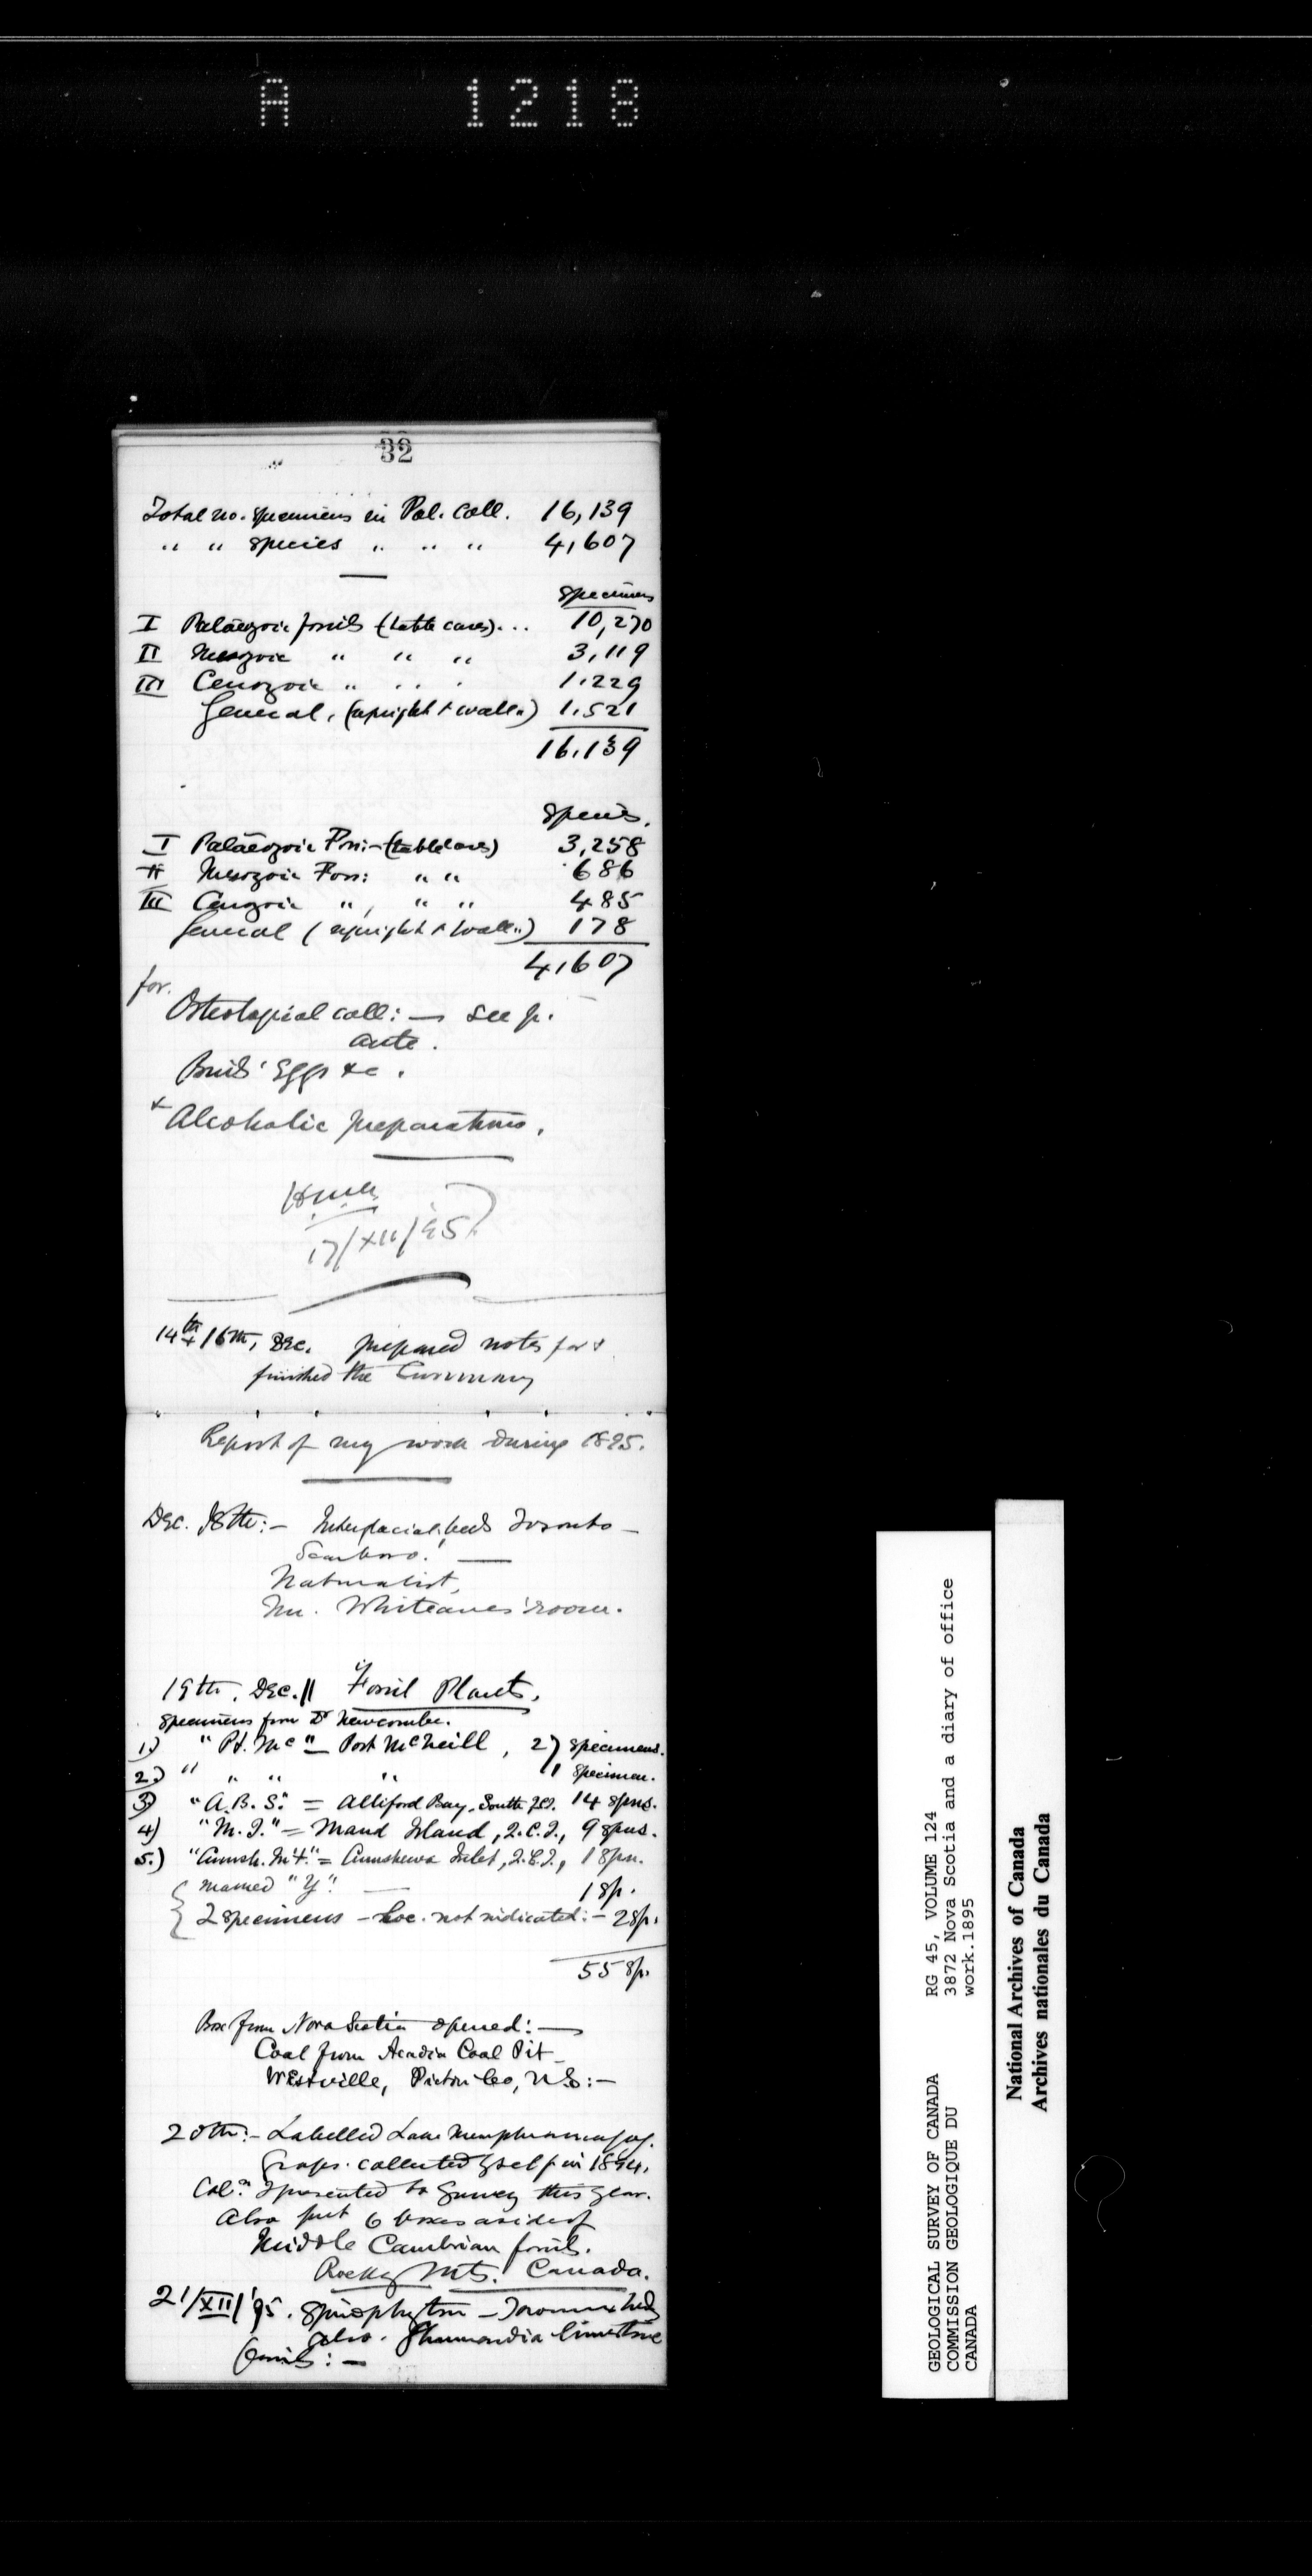 A 1218
32
Total no. specimens in Pal. Coll. 16,139
" " Species " " " 4,607
Specimens
I Palaeozoic fossils (table cases)... 10,270
II Mesozoic " " " 3,119
III Cenozoic " " " 1.229
General, (upright & wall ") 1.521
16.139
Species.
I Palaeozoic Foss:- (table cases) 3,258
II Mesozoic Foss: " " 686
III Cenozoic ", " " 485
General (upright & wall ") 178
4,607
for.
Osteological coll: — see p.
ante.
Birds' Eggs &c.
& Alcoholic preparations.
17/XII/95
14th & 16th, Dec. prepared notes for &
finished the Summary
Report of my work during 1895.
Dec. 18th:- Interglacial beds Toronto —
Scarboro.' —
Naturalist,
Mr. Whiteaves' room.
19th, Dec. || Fossil Plants.
Specimens from Dr Newcombe.
1.) "Pt. Mc" — Port McNeill, 27 specimens.
2.) " " " " 1 specimen.
3) "A.B.S." = Alliford Bay, South 14 spns.
4) "M.I." = Maud Island, Q.C.I., 9 spns.
5.) "Cumsh. Int." = Cumshewa Inlet, Q.C.I., 1 spn.
Marked "Y". — 1 sp.
2 specimens — Loc. not indicated:- 2 sp.
55 sp.
Box from Nova Scotia opened: —
Coal from Acadia Coal Pit
Westville, Pictou Co, N.S:-
20th:- Labelled Lake Memphremagog.
Graps. collected by self in 1894.
Col.n I presented to Survey this year.
Also put 6 boxes aside of
Middle Cambrian fossils.
Rocky Mts. Canada.
21/XII/'95. Spirophyton —
also.  limestone
fossils: —
GEOLOGICAL SURVEY OF CANADA
COMMISSION GEOLOGIQUE DU
CANADA
RG 45, VOLUME 124
3872 Nova Scotia and a diary of office
work.1895
National Archives of Canada
Archives nationales du Canada